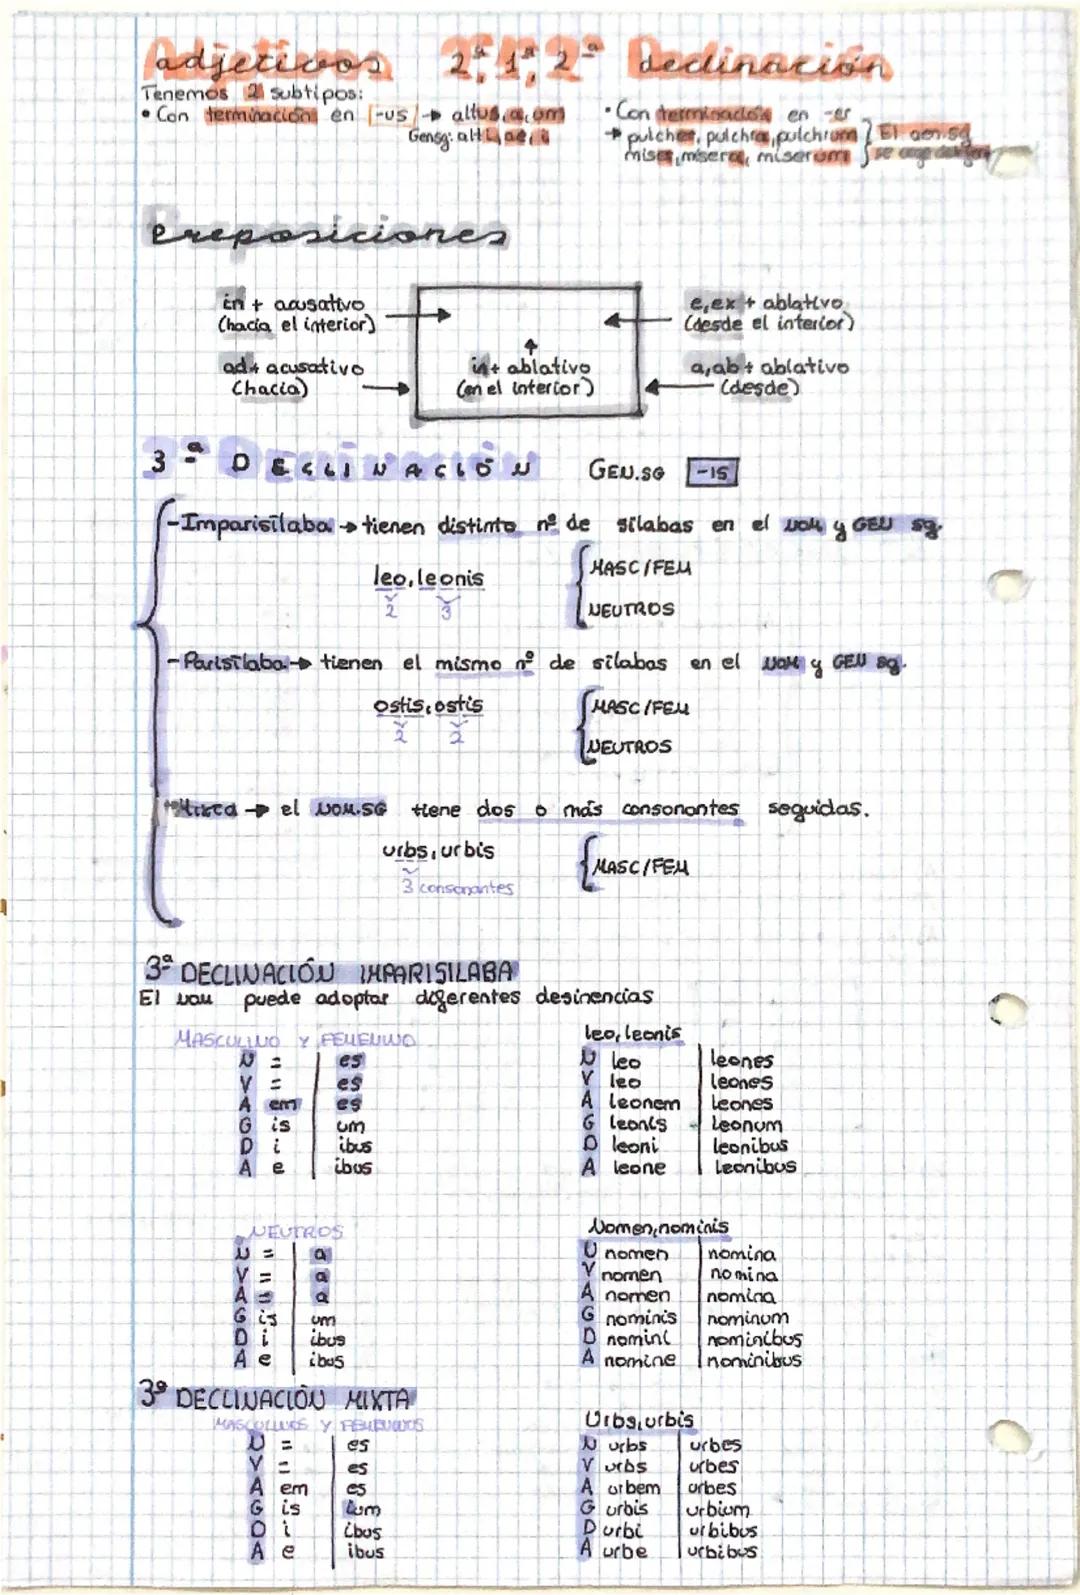 adjetivos 2ª, 1ª, 2ª Declinación
Tenemos 2 subtipos:
• Con terminación en -us → altus, a, um
Gensg: alti, ae, i
• Con terminación en -er
→ pulcher, pulchra, pulchrum
miser, misera, miserum
El gen.sg
se
Preposiciones
in + acusativo
(hacia el interior)
ad + acusativo
(hacia)
in + ablativo
(en el interior)
e, ex + ablativo
(desde el interior)
a, ab + ablativo
(desde)
3ª DECLINACIÓN GEN.SG -is
-Imparisílaba → tienen distinto nº de sílabas en el NOM y GEN sg.
leo, leonis
2 3
MASC/FEM
NEUTROS
-Parisílaba → tienen el mismo nº de sílabas en el NOM y GEN sg.
ostis, ostis
2 2
MASC/FEM
NEUTROS
-Mixta → el NOM.SG tiene dos o más consonantes seguidas.
urbs, urbis
3 consonantes
MASC/FEM
3ª DECLINACIÓN IMPARISILABA
El nom puede adoptar diferentes desinencias
MASCULINO Y FEMENINO
N = es
V = es
A em es
G is um
D i ibus
A e ibus
leo, leonis
N leo leones
V leo leones
A leonem leones
G leonis leonum
D leoni leonibus
A leone leonibus
NEUTROS
N = a
V = a
A = a
G is um
D i ibus
A e ibus
Nomen, nominis
N nomen nomina
V nomen nomina
A nomen nomina
G nominis nominum
D nomini nominibus
A nomine nominibus
3ª DECLINACIÓN MIXTA
MASCULINOS Y FEMENINOS
N = es
V = es
A em es
G is ium
D i ibus
A e ibus
Urbs, urbis
N urbs urbes
V urbs urbes
A urbem urbes
G urbis urbium
D urbi urbibus
A urbe urbibus